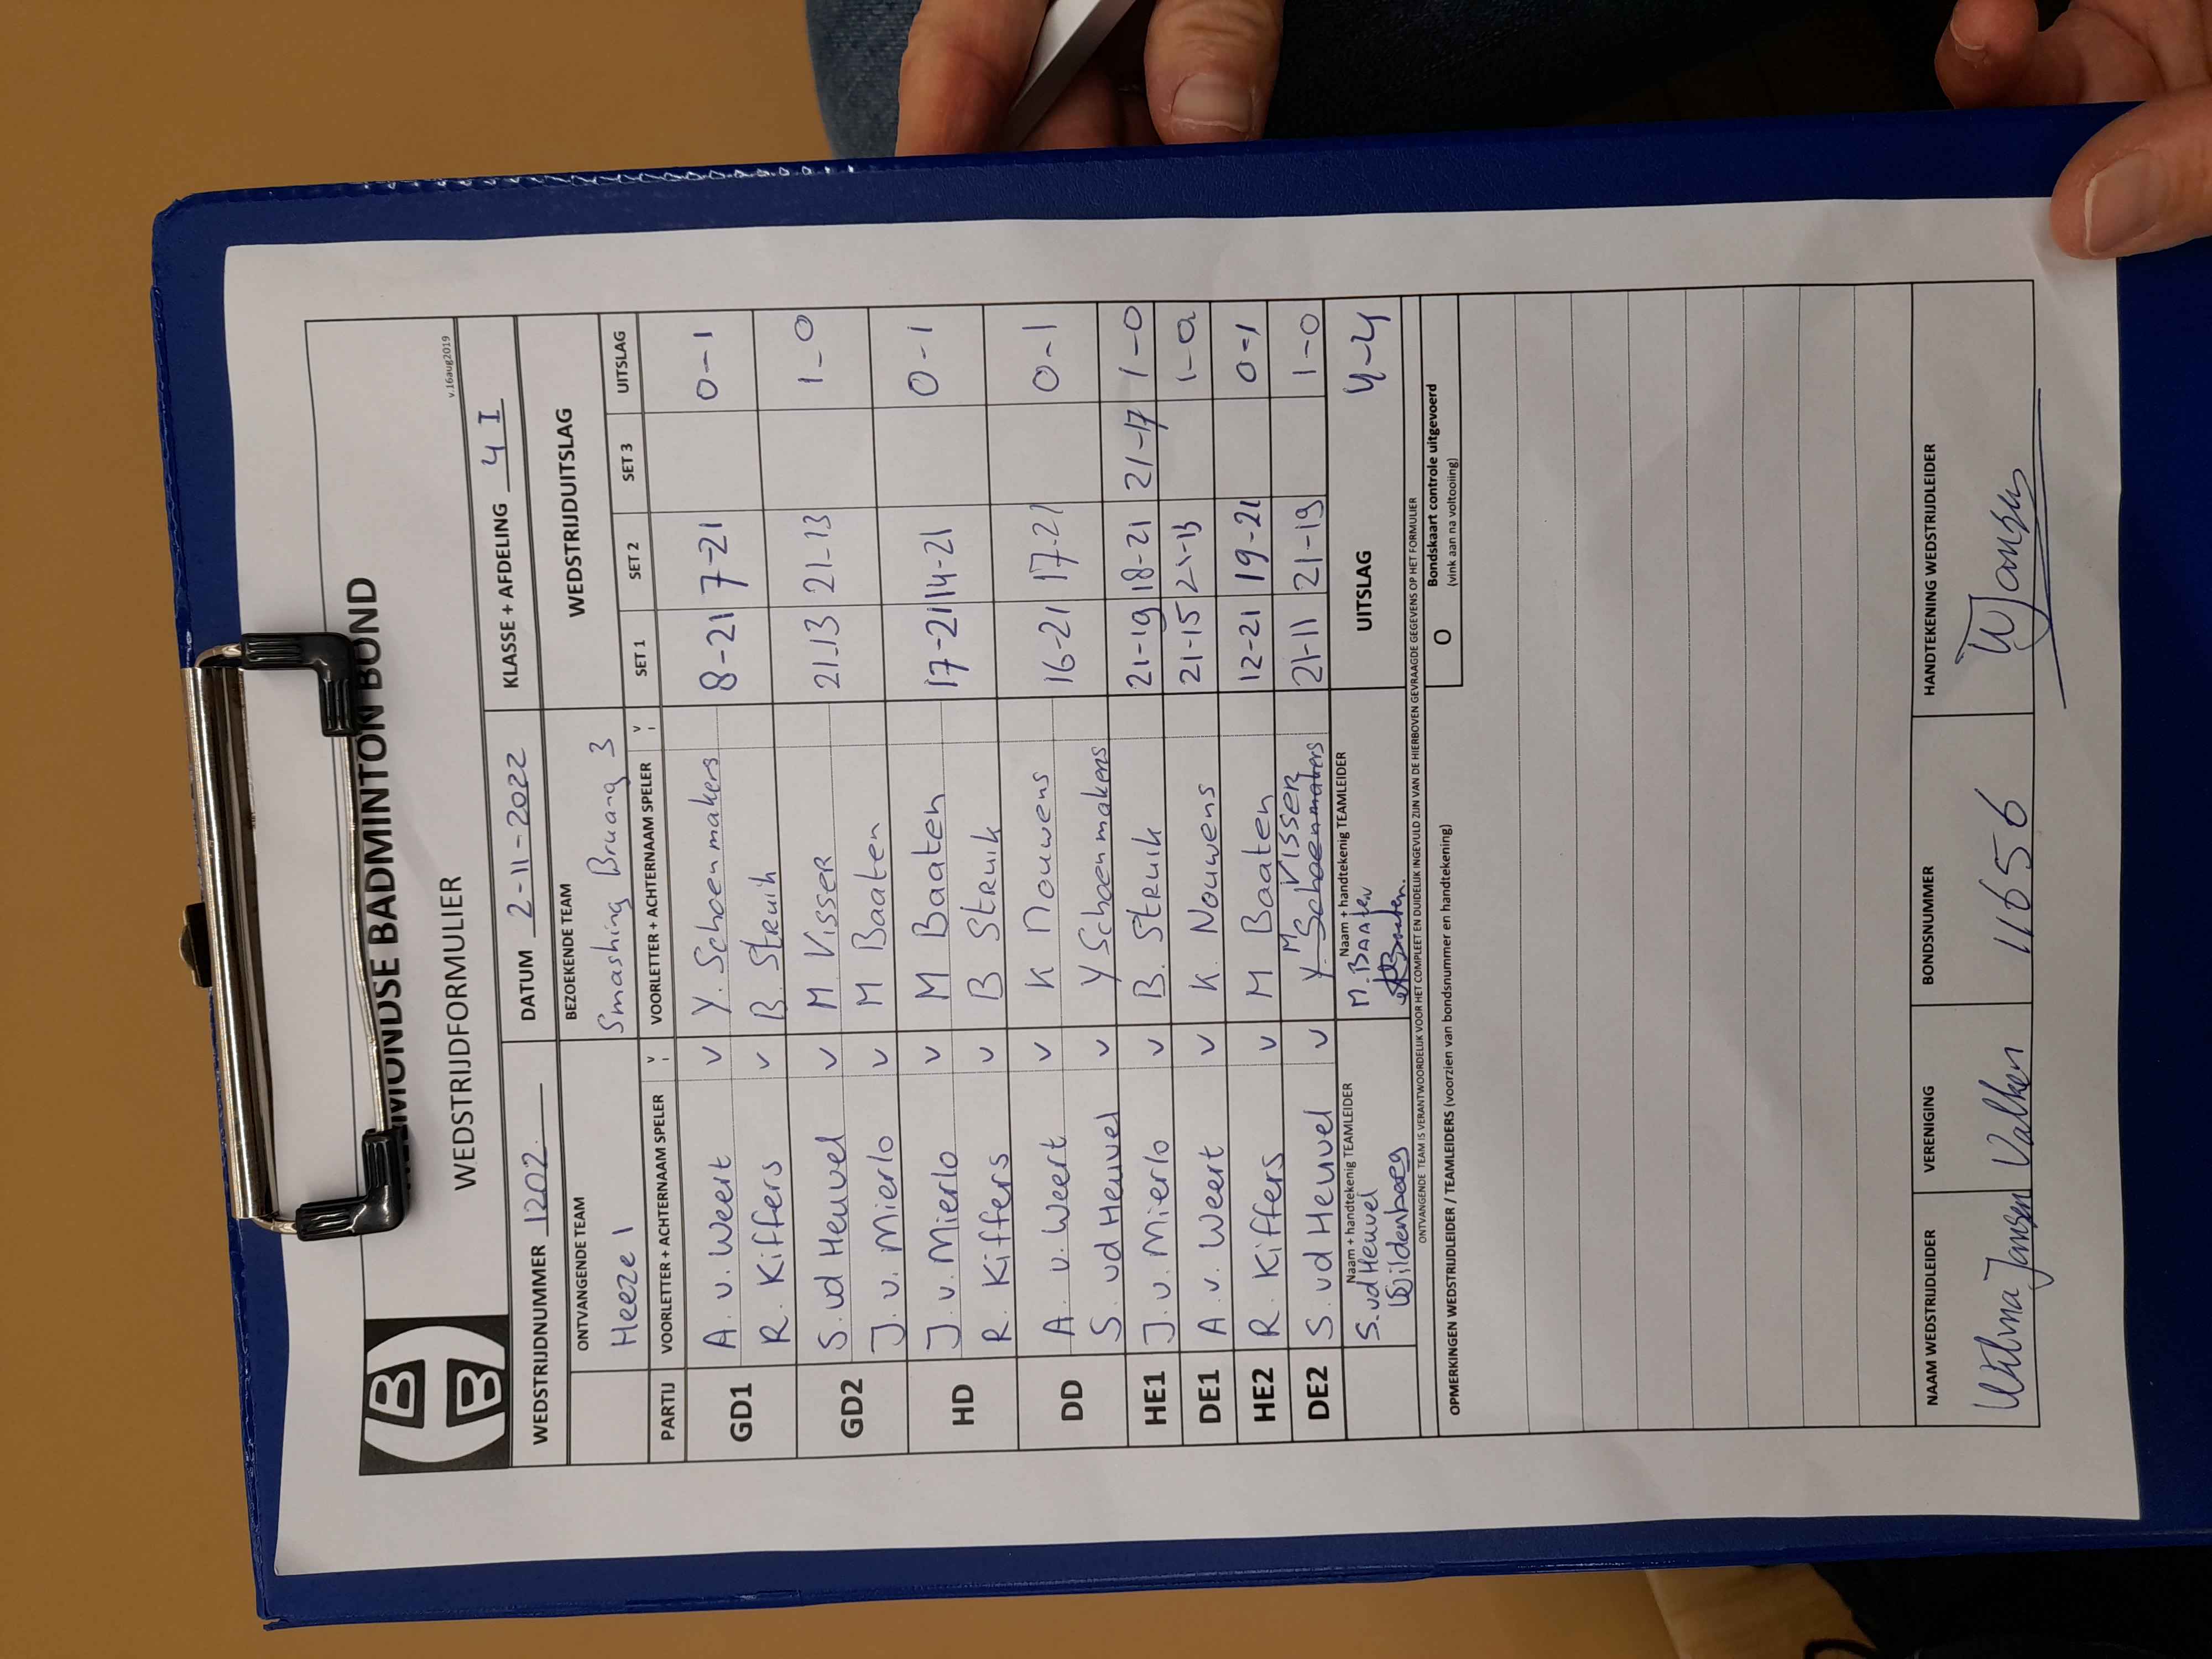 HBB
MONDSE BADMINTON BOND
WEDSTRIJDFORMULIER
v.16aug2019
WEDSTRIJDNUMMER 1202 DATUM 2-11-2022 KLASSE + AFDELING 4 I
ONTVANGENDE TEAM BEZOEKENDE TEAM WEDSTRIJDUITSLAG
Heeze 1 Smashing Bruang 3
PARTIJ VOORLETTER + ACHTERNAAM SPELER V VOORLETTER + ACHTERNAAM SPELER V SET 1 SET 2 SET 3 UITSLAG
GD1 A. v. Weert v Y. Schoenmakers 8-21 7-21 0-1
R. Kiffers v B. Struik
GD2 S. vd Heuvel v M. Visser 21-13 21-13 1-0
J. v. Mierlo v M Baaten
HD J. v. Mierlo v M Baaten 17-21 14-21 0-1
R. Kiffers v B Struik
DD A. v. Weert v K Nouwens 16-21 17-21 0-1
S. vd Heuvel v Y Schoenmakers
HE1 J. v. Mierlo v B. Struik 21-19 18-21 21-17 1-0
DE1 A. v. Weert v K. Nouwens 21-15 21-13 1-0
HE2 R. Kiffers v M Baaten 12-21 19-21 0-1
DE2 S. vd Heuvel v Y. Schoenmakers M Visser 21-11 21-19 1-0
Naam + handtekenig TEAMLEIDER Naam + handtekenig TEAMLEIDER UITSLAG 4-4
S. vd Heuvel M. Baaten
Wildenberg
ONTVANGENDE TEAM IS VERANTWOORDELIJK VOOR HET COMPLEET EN DUIDELIJK INGEVULD ZIJN VAN DE HIERBOVEN GEVRAAGDE GEGEVENS OP HET FORMULIER
O Bondskaart controle uitgevoerd
(vink aan na voltooiing)
OPMERKINGEN WEDSTRIJDLEIDER / TEAMLEIDERS (voorzien van bondsnummer en handtekening)
NAAM WEDSTRIJDLEIDER VERENIGING BONDSNUMMER HANDTEKENING WEDSTRIJDLEIDER
Wilma Jansen Valken 11656 WJansen